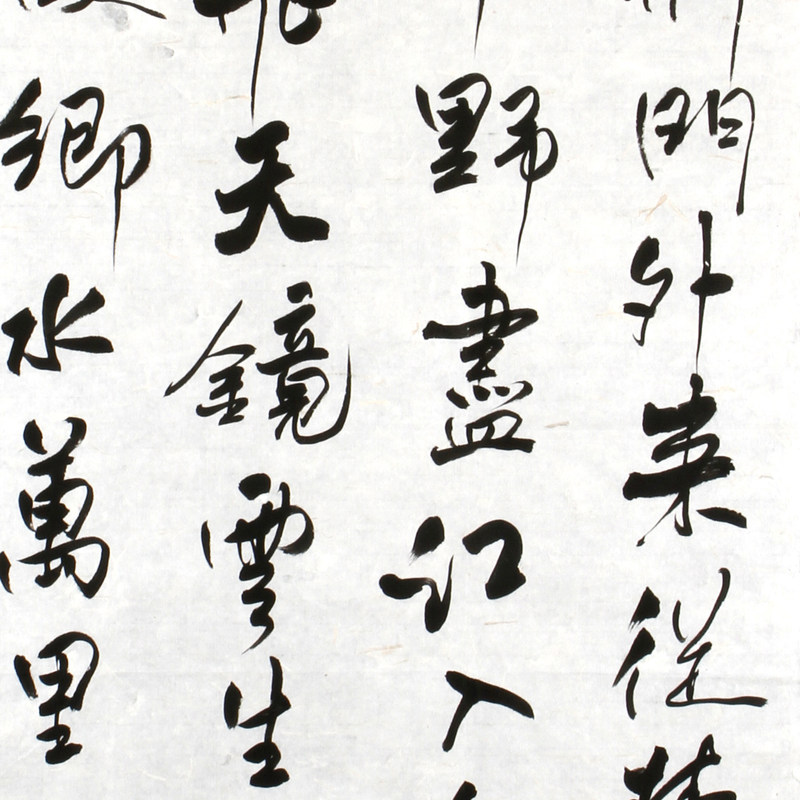 門外来従
野盡江入
飛天鏡雲生
鄉水萬里